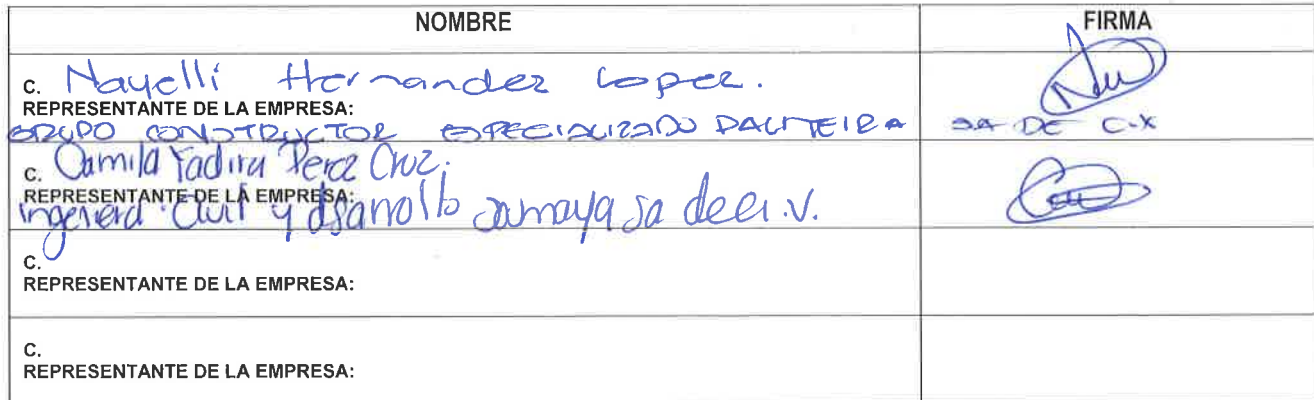 NOMBRE FIRMA
C. Nayelli Hernandez Lopez.
REPRESENTANTE DE LA EMPRESA:
GRUPO CONSTRUCTOR ESPECIALIZADO SA DE C.V
C. Camila Yadira Perez Cruz.
REPRESENTANTE DE LA EMPRESA:
ingenieria Civil y dsarrollo samaya sa de c.v.
C.
REPRESENTANTE DE LA EMPRESA:
C.
REPRESENTANTE DE LA EMPRESA: